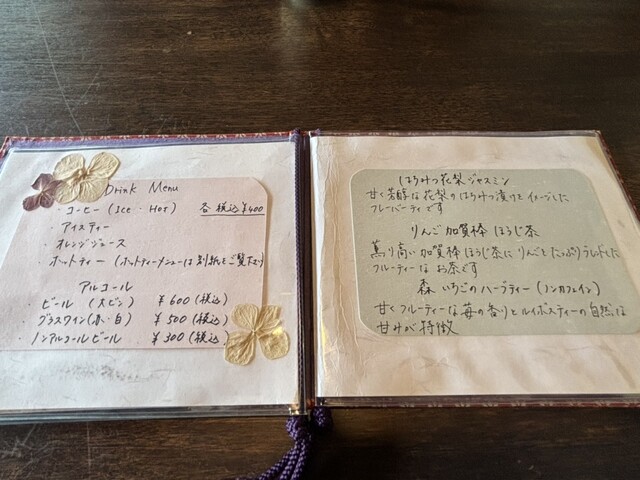 Drink Menu
・コーヒー (Ice・Hot) 各 税込¥400
・アイスティー
・オレンジジュース
・ホットティー (ホットティーメニューは別紙をご覧下さい)
アルコール
・ビール (大ビン) ¥600 (税込)
・グラスワイン (赤・白) ¥500 (税込)
・ノンアルコールビール ¥300 (税込)
はちみつ花梨ジャスミン
甘く芳醇な花梨のはちみつ漬けをイメージした
フレーバーティです
りんご加賀棒ほうじ茶
薫り高い加賀棒ほうじ茶にりんごをたっぷりブレンドした
フルーティーなお茶です
森いちごのハーブティー (ノンカフェイン)
甘くフルーティーな苺の香りとルイボスティーの自然な
甘みが特徴